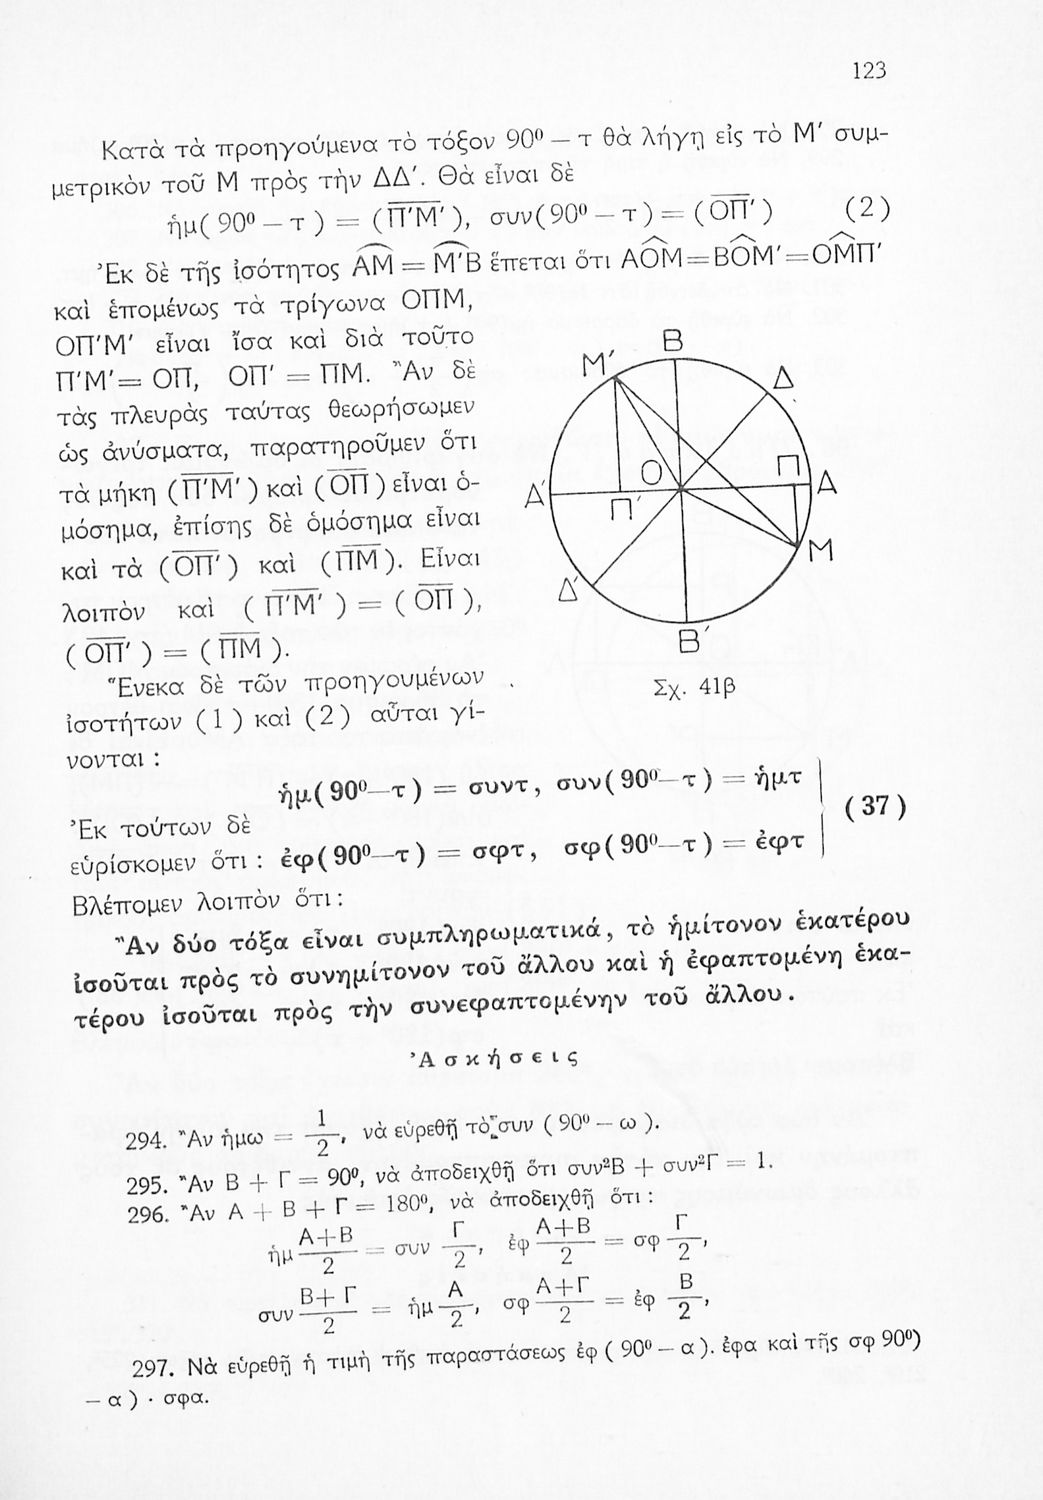 123
Κατὰ τὰ προηγούμενα τὸ τόξον 90⁰ — τ θὰ λήγῃ εἰς τὸ Μ′ συμ-
μετρικὸν τοῦ Μ πρὸς τὴν ΔΔ′. Θὰ εἶναι δὲ
ἡμ( 90⁰ — τ ) = ( Π′Μ′ ), συν(90⁰ — τ ) = ( ΟΠ′ ) (2)
Ἐκ δὲ τῆς ἰσότητος ΑΜ = Μ′Β ἕπεται ὅτι ΑΟΜ = ΒΟΜ′ = ΟΜΠ′
καὶ ἑπομένως τὰ τρίγωνα ΟΠΜ,
ΟΠ′Μ′ εἶναι ἴσα καὶ διὰ τοῦτο
Π′Μ′ = ΟΠ, ΟΠ′ = ΠΜ. Ἂν δὲ
τὰς πλευρὰς ταύτας θεωρήσωμεν
ὡς ἀνύσματα, παρατηροῦμεν ὅτι
τὰ μήκη (Π′Μ′ ) καὶ ( ΟΠ ) εἶναι ὁ-
μόσημα, ἐπίσης δὲ ὁμόσημα εἶναι
καὶ τὰ (ΟΠ′ ) καὶ (ΠΜ). Εἶναι
λοιπὸν καὶ ( Π′Μ′ ) = ( ΟΠ ),
( ΟΠ′ ) = ( ΠΜ ).
Β
Μ′
Δ
Ο
Π
Α′
Α
Π′
Μ
Δ′
Β′
Σχ. 41β
Ἕνεκα δὲ τῶν προηγουμένων
ἰσοτήτων (1) καὶ (2) αὗται γί-
νονται :
ἡμ( 90⁰—τ ) = συντ, συν( 90⁰—τ ) = ἡμτ
(37)
Ἐκ τούτων δὲ
εὑρίσκομεν ὅτι : ἐφ( 90⁰—τ ) = σφτ, σφ( 90⁰—τ ) = ἐφτ
Βλέπομεν λοιπὸν ὅτι :
Ἂν δύο τόξα εἶναι συμπληρωματικά, τὸ ἡμίτονον ἑκατέρου
ἰσοῦται πρὸς τὸ συνημίτονον τοῦ ἄλλου καὶ ἡ ἐφαπτομένη ἑκα-
τέρου ἰσοῦται πρὸς τὴν συνεφαπτομένην τοῦ ἄλλου.
Ἀσκήσεις
294. Ἂν ἡμω = 1/2, νὰ εὑρεθῇ τὸ συν ( 90⁰ — ω ).
295. Ἂν Β + Γ = 90⁰, νὰ ἀποδειχθῇ ὅτι συν²Β + συν²Γ = 1.
296. Ἂν Α + Β + Γ = 180⁰, νὰ ἀποδειχθῇ ὅτι :
ἡμ Α+Β/2 = συν Γ/2, ἐφ Α+Β/2 = σφ Γ/2,
συν Β+Γ/2 = ἡμ Α/2, σφ Α+Γ/2 = ἐφ Β/2,
297. Νὰ εὑρεθῇ ἡ τιμὴ τῆς παραστάσεως ἐφ ( 90⁰ — α ). ἐφα καὶ τῆς σφ 90⁰)
— α ) · σφα.